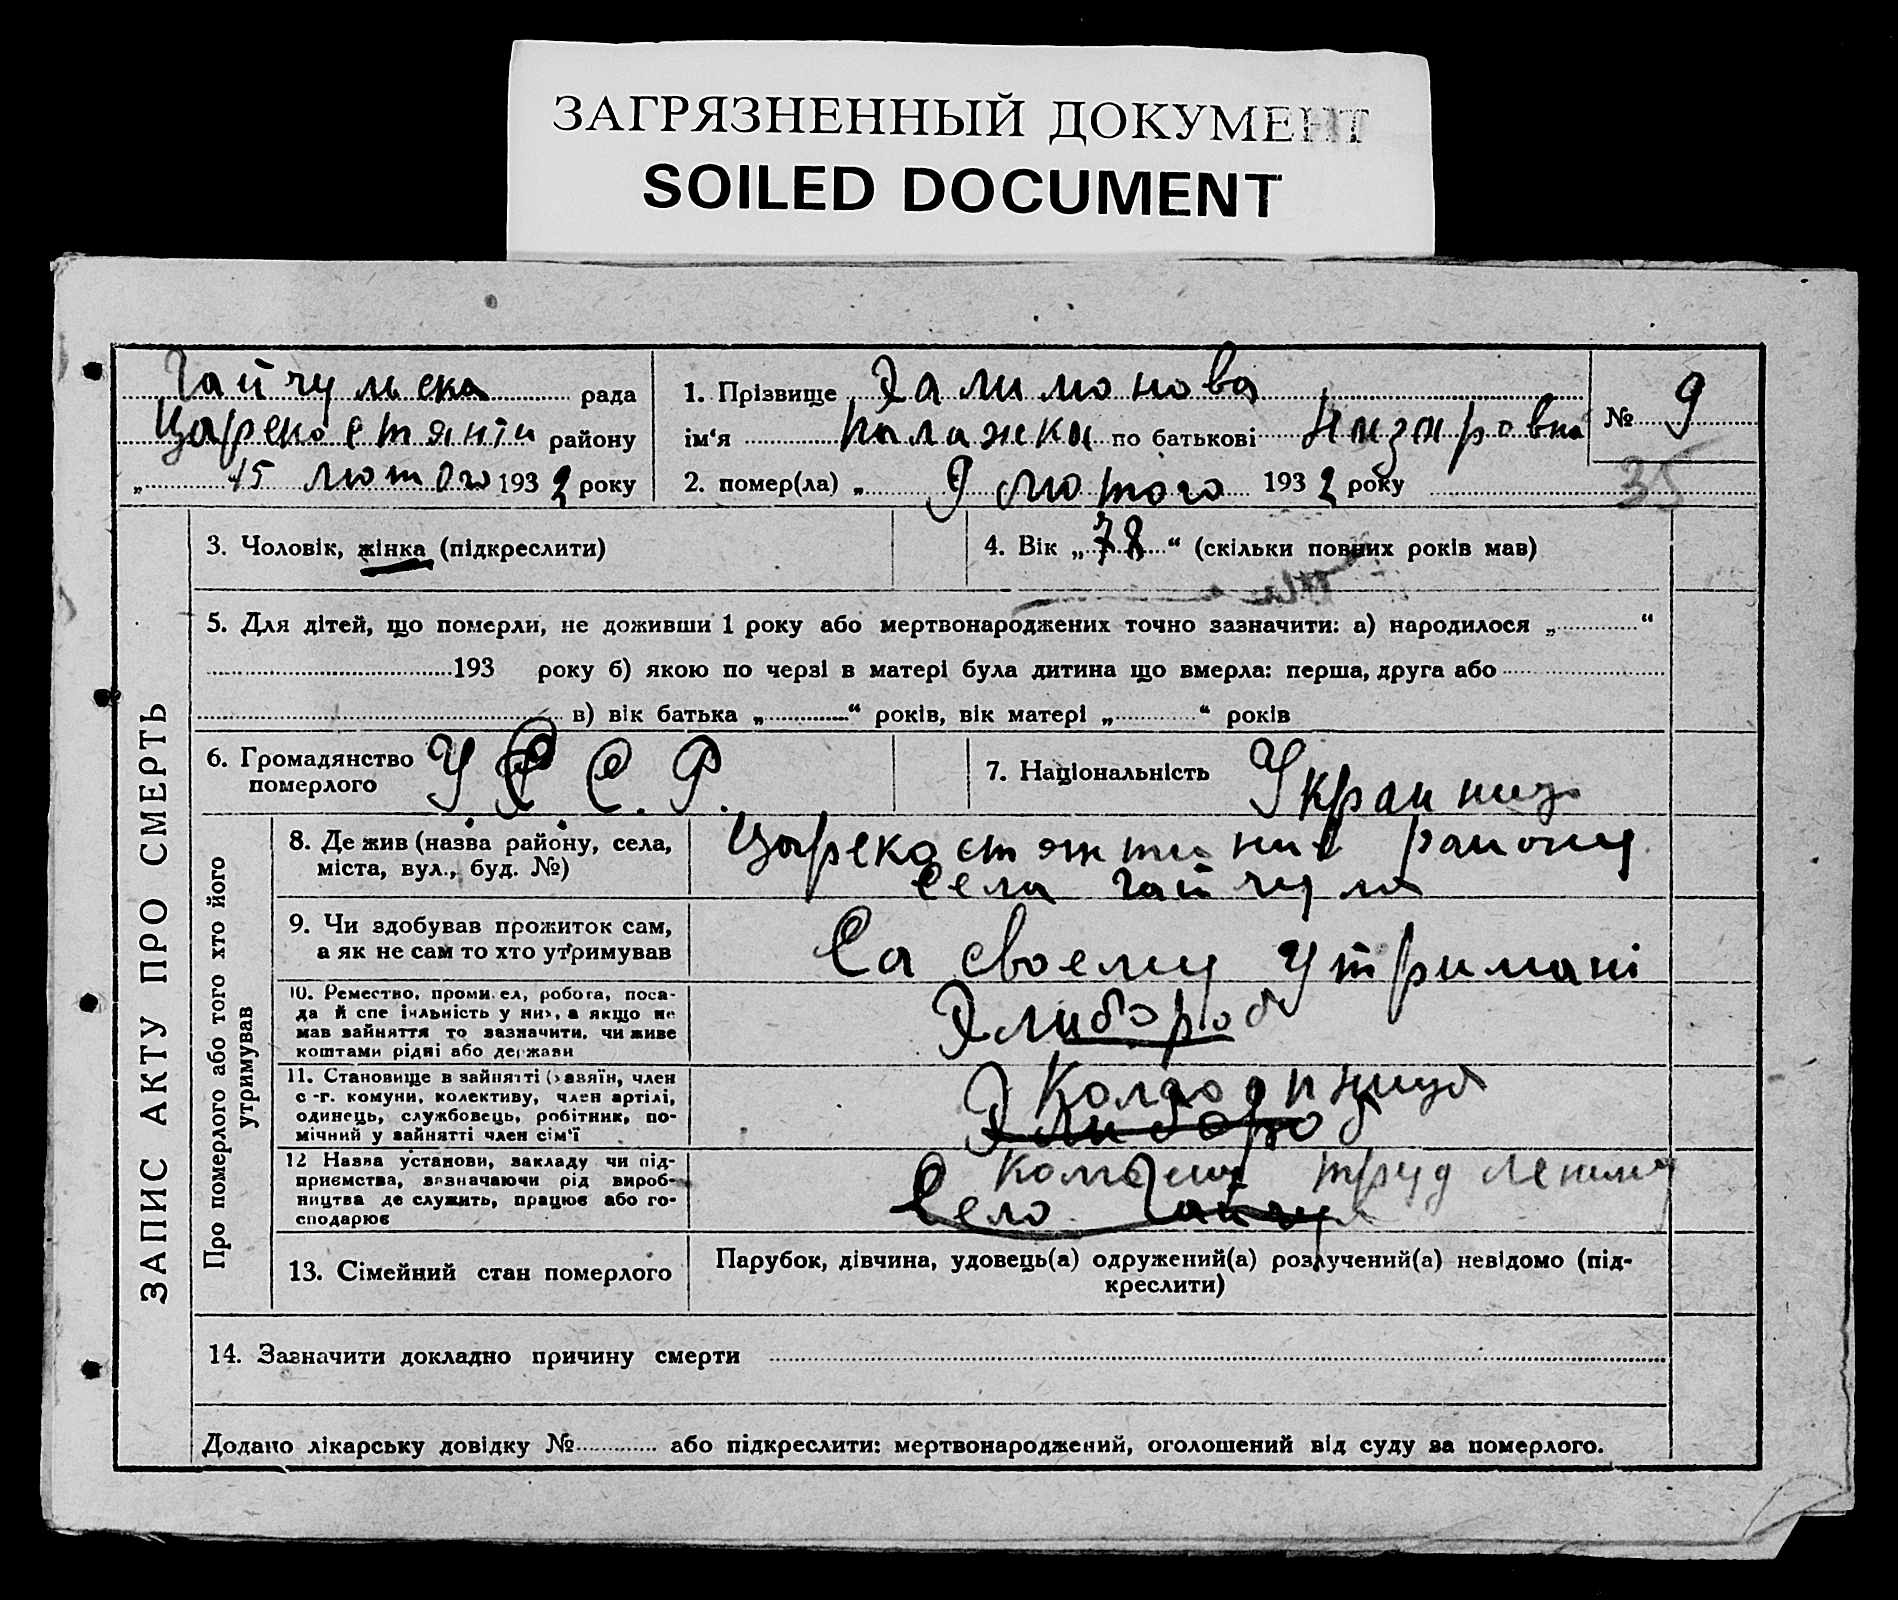 ЗАГРЯЗНЕННЫЙ ДОКУМЕНТ
SOILED DOCUMENT
Гайчульска рада
району
„ 15 лютого 1932 року
1. Прізвище Халимонова
ім‘я Палажка по батькові Назаровна
№ 9
2. помер(ла) „ 9 лютого 1932 року
35
3. Чоловік, жінка (підкреслити)
4. Вік „ 78 “ (скільки повних років мав)
5. Для дітей, що померли, не доживши 1 року або мертвонароджених точно зазначити: а) народилося „ “
193 року б) якою по черзі в матері була дитина що вмерла: перша, друга або
в) вік батька „ “ років, вік матері „ “ років
6. Громадянство
померлого
У С С. Р.
7. Національність
8. Де жив (назва району, села,
міста, вул., буд. №)
району
села Гайчуля
9. Чи здобував прожиток сам,
а як не сам то хто утримував
На своему утримані
10. Ремество, промисел, робота, поса-
да й спеціяльність у них, а якщо не
мав зайняття то зазначити, чи живе
коштами рідні або держави
Хлибороб
11. Становище в зайнятті (хазяїн, член
с.-г. комуни, колективу, член артілі,
одинець, службовець, робітник, по-
мічний у зайнятті член сім‘ї
Хлибороб
12 Назва установи, закладу чи під-
приємства, зазначаючи рід вироб-
ництва де служить, працює або го-
сподарює
труд Ленина
Село Гайчул
13. Сімейний стан померлого
Парубок, дівчина, удовець(а) одружений(а) розлучений(а) невідомо (під-
креслити)
14. Зазначити докладно причину смерти
Додано лікарську довідку № або підкреслити: мертвонароджений, оголошений від суду за померлого.
ЗАПИС АКТУ ПРО СМЕРТЬ
Про померлого або того хто його
утримував